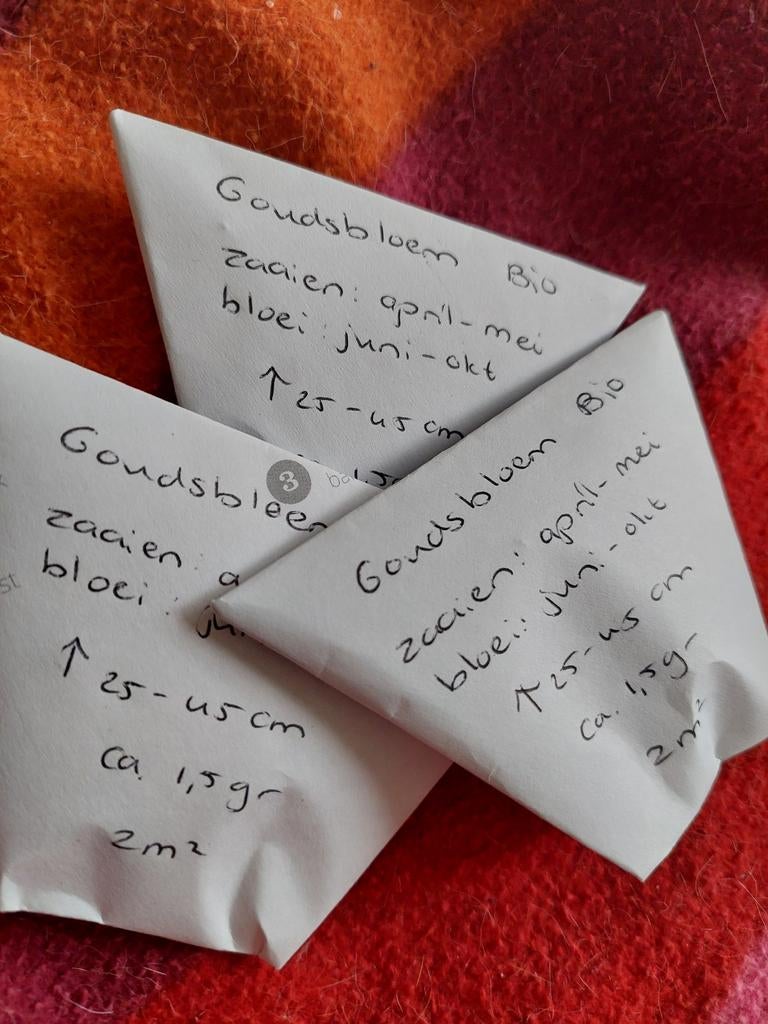 Goudsbloem Bio
zaaien: april-mei
bloei: juni-okt
↑ 25-45 cm
Goudsbloem
zaaien: a
bloei: ju
↑ 25-45 cm
ca. 1,5 gr
2m²
3
Goudsbloem Bio
zaaien: april-mei
bloei: juni-okt
↑ 25-45 cm
ca. 1,5 gr
2m²